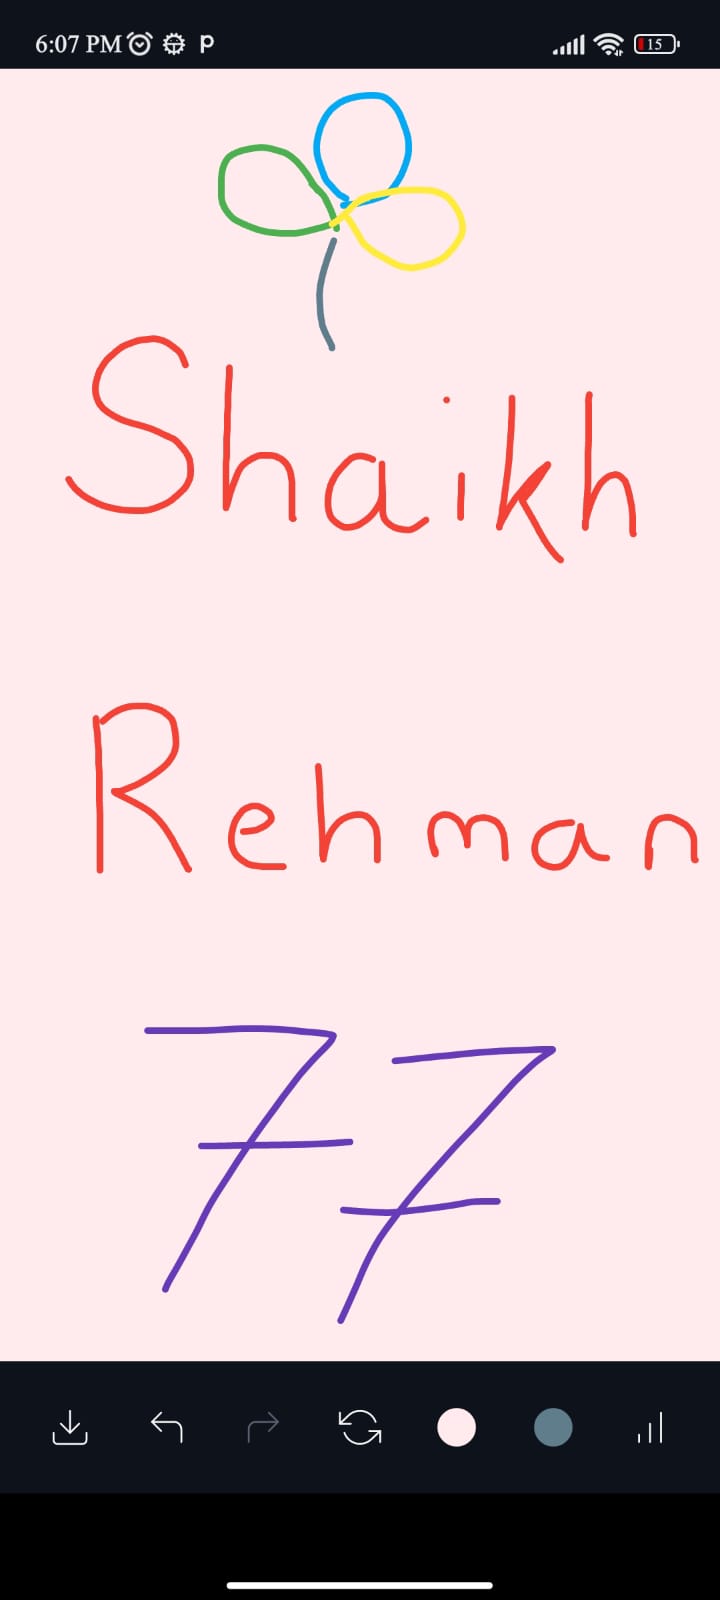 6:07 PM P 15
Shaikh
Rehman
77